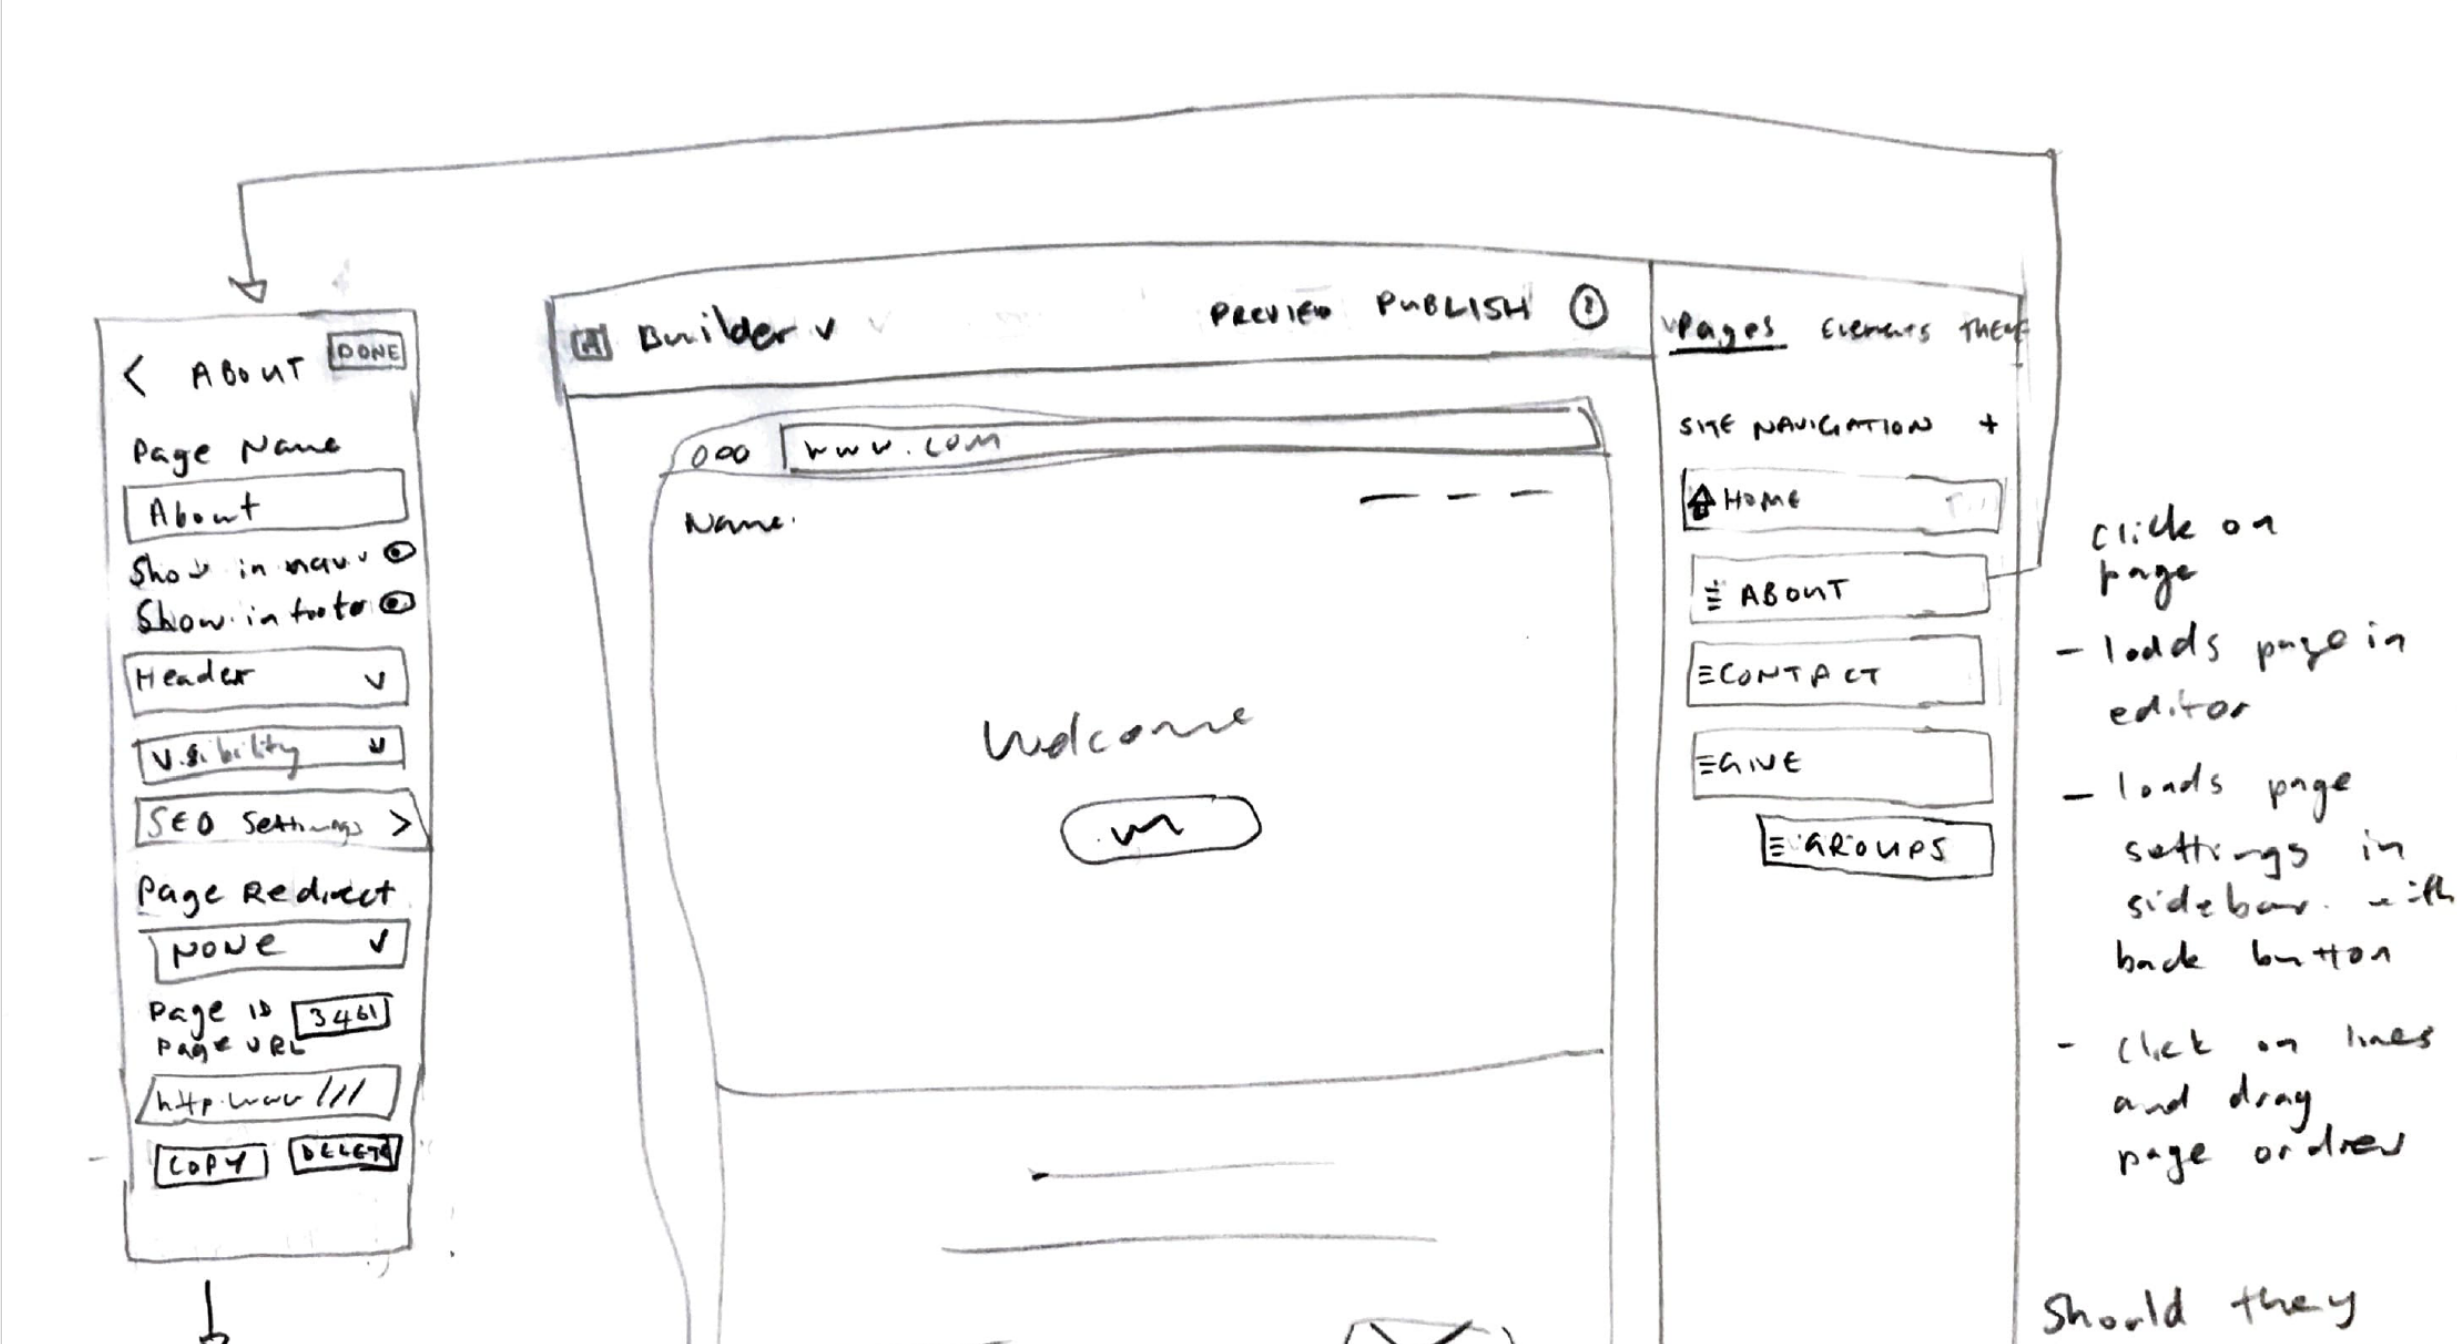 < ABOUT DONE
Page Name
About
Show in nav
Show in footer
Header
Visibility
SEO Settings >
Page Redirect
NONE
Page ID 3461
Page URL
http.www ///
COPY DELETE
Builder
PREVIEW PUBLISH ?
www.com
Name.
Welcome
Pages Elements THEME
SITE NAVIGATION +
HOME
ABOUT
CONTACT
GIVE
GROUPS
click on
page
- loads page in
editor
- loads page
settings in
sidebar. with
back button
- click on lines
and drag
page ordrer
Should they